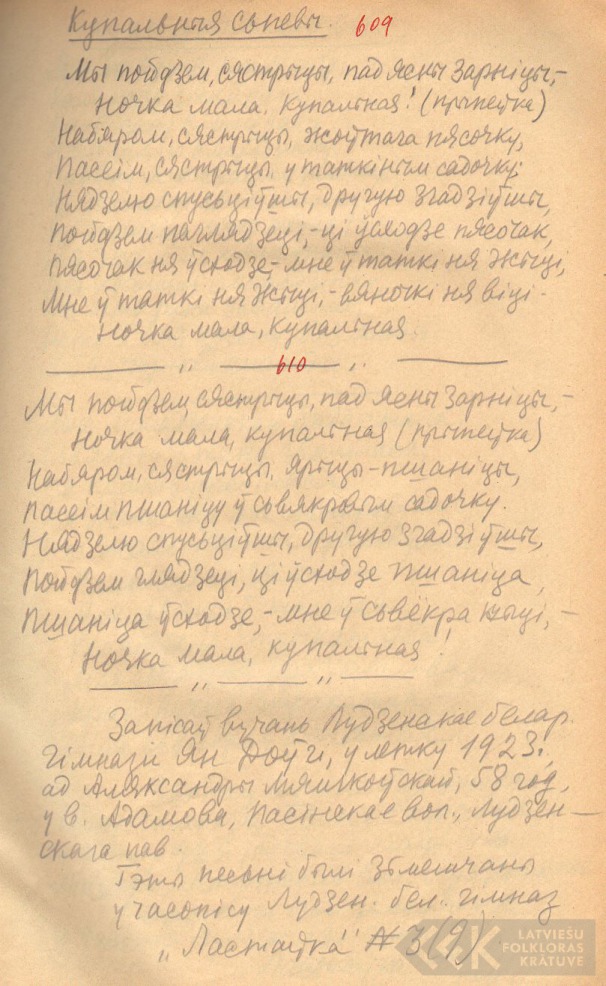 Купальныя сьпевы. 609
Мы пойдзем, сястрыцы, пад ясны зарніцы,-
Ночка мала, купальная! (прыпеўка)
Набяром, сястрыцы, жоўтага пясочку,
Пасеім, сястрыцы, у таткіным садочку;
Нядзелю спусьціўшы, другую згадзіўшы,
Пойдзем паглядзеці,-ці ўсходзе пясочак,
Пясочак ня ўсходзе,-мне ў таткі ня жыці,
Мне ў таткі ня жыці,-вяночкі ня віці-
Ночка мала, купальная.
610
Мы пойдзем, сястрыцы, пад ясны зарніцы,-
Ночка мала, купальная (прыпеўка)
Набяром, сястрыцы, ярыцы-пшаніцы,
Пасеім пшаніцу ў сьвякровым садочку.
Нядзелю спусьціўшы, другую згадзіўшы,
Пойдзем глядзеці, ці ўсходзе пшаніца,
Пшаніца ўсходзе,-мне ў сьвёкра жыці,-
Ночка мала, купальная!
Запісаў вучань Лудзенскае белар.
гімназіі Ян Доўгі, у летку 1923г.
ад Аляксандры Мяшкоўскай, 58 год,
у в. Адамова, Пасінскае вол., Лудзен-
скага пав.
Гэты песьні былі зьмешчаны
у часопісу Лудзен. бел. гімназ
„Ластаўка" № 3(9)
LATVIEŠU
FOLKLORAS
KRĀTUVE